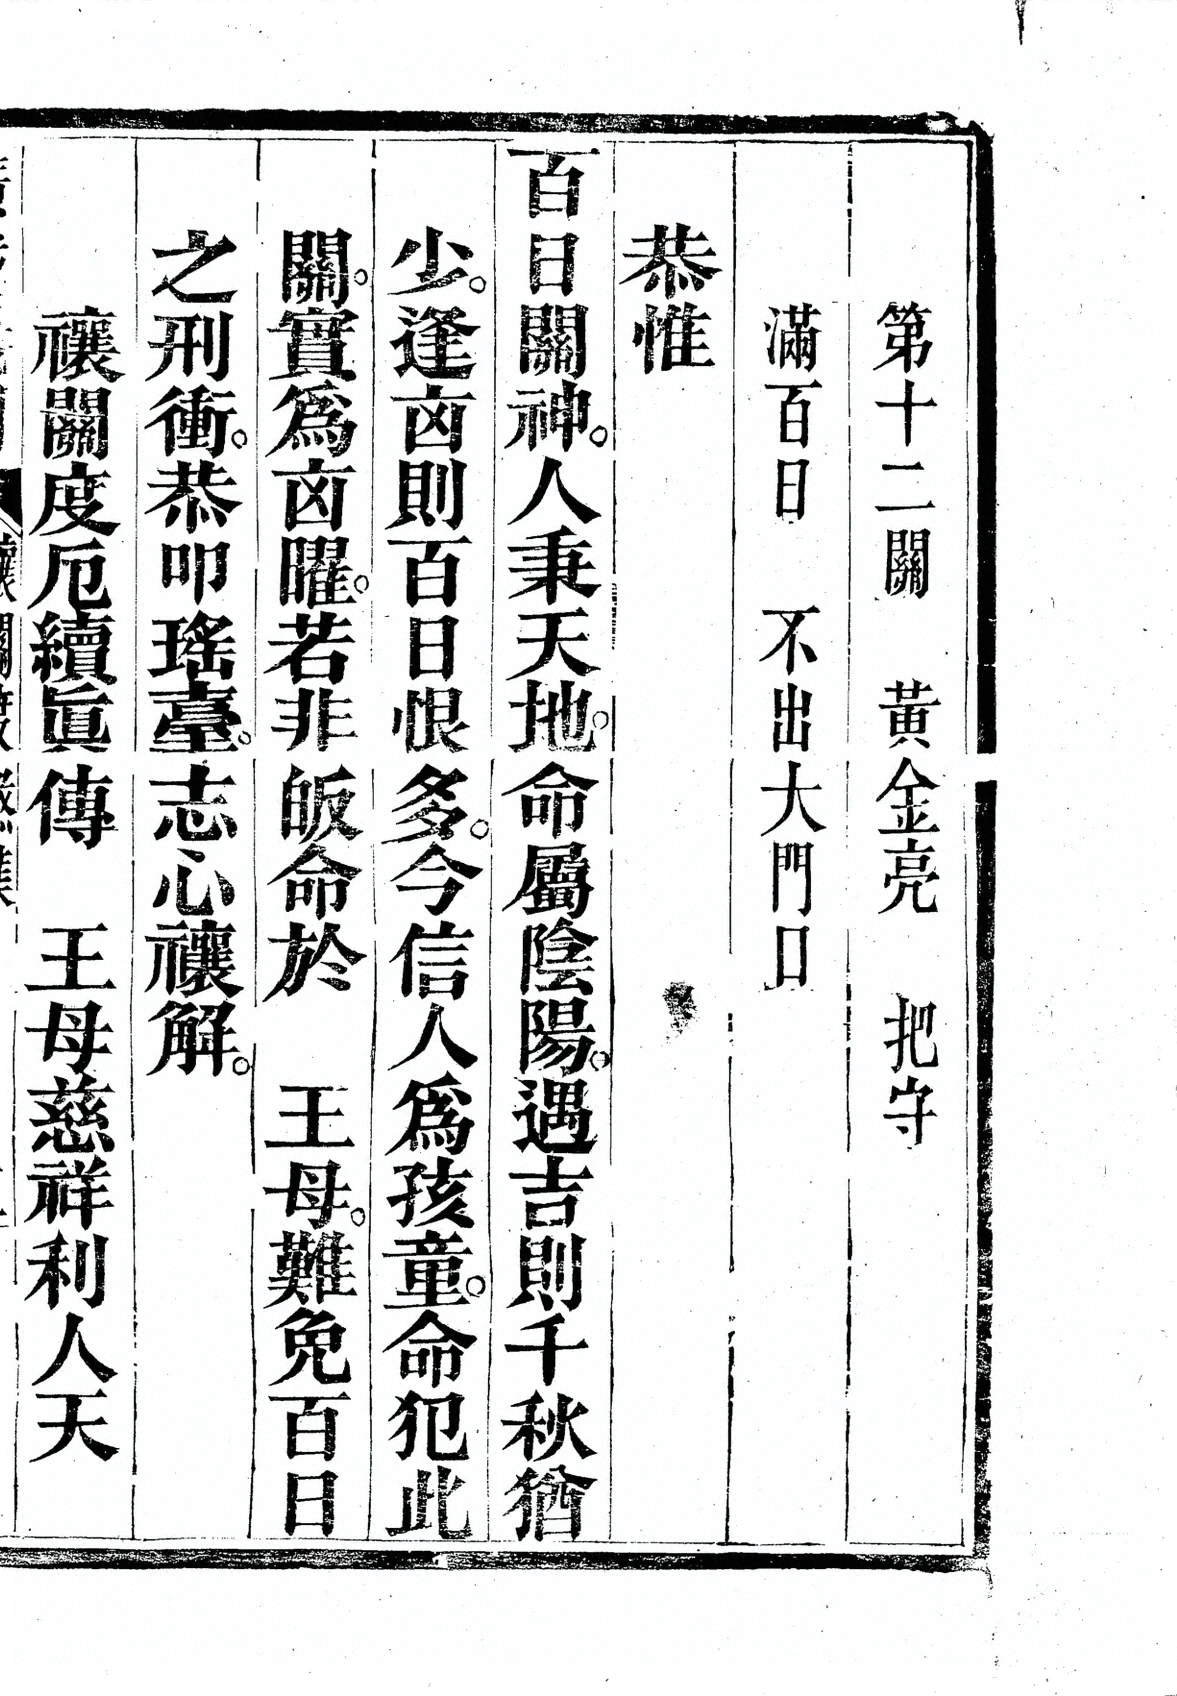 第十二關　黃金亮　把守
滿百日　不出大門口
恭惟
百日關神。人秉天地。命屬陰陽。遇吉則千秋猶
少。逢凶則百日恨多。今信人爲孩童。命犯此
關。實爲凶曜。若非皈命於　王母。難免百日
之刑衝。恭叩瑤臺。志心禳解。
禳關度厄續眞傳　王母慈祥利人天